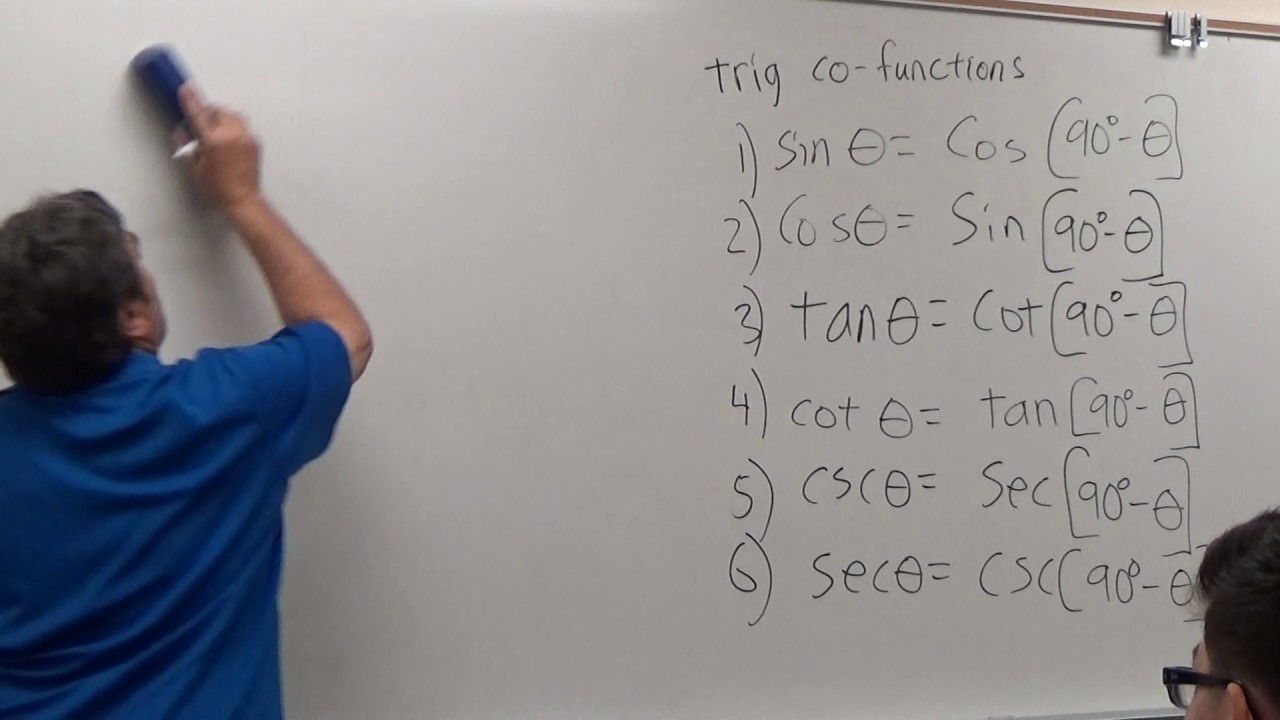 trig co-functions
1) sin θ = Cos [90° - θ]
2) Cos θ = Sin [90° - θ]
3) tan θ = Cot [90° - θ]
4) cot θ = tan [90° - θ]
5) csc θ = Sec [90° - θ]
6) sec θ = CSC [90° - θ]